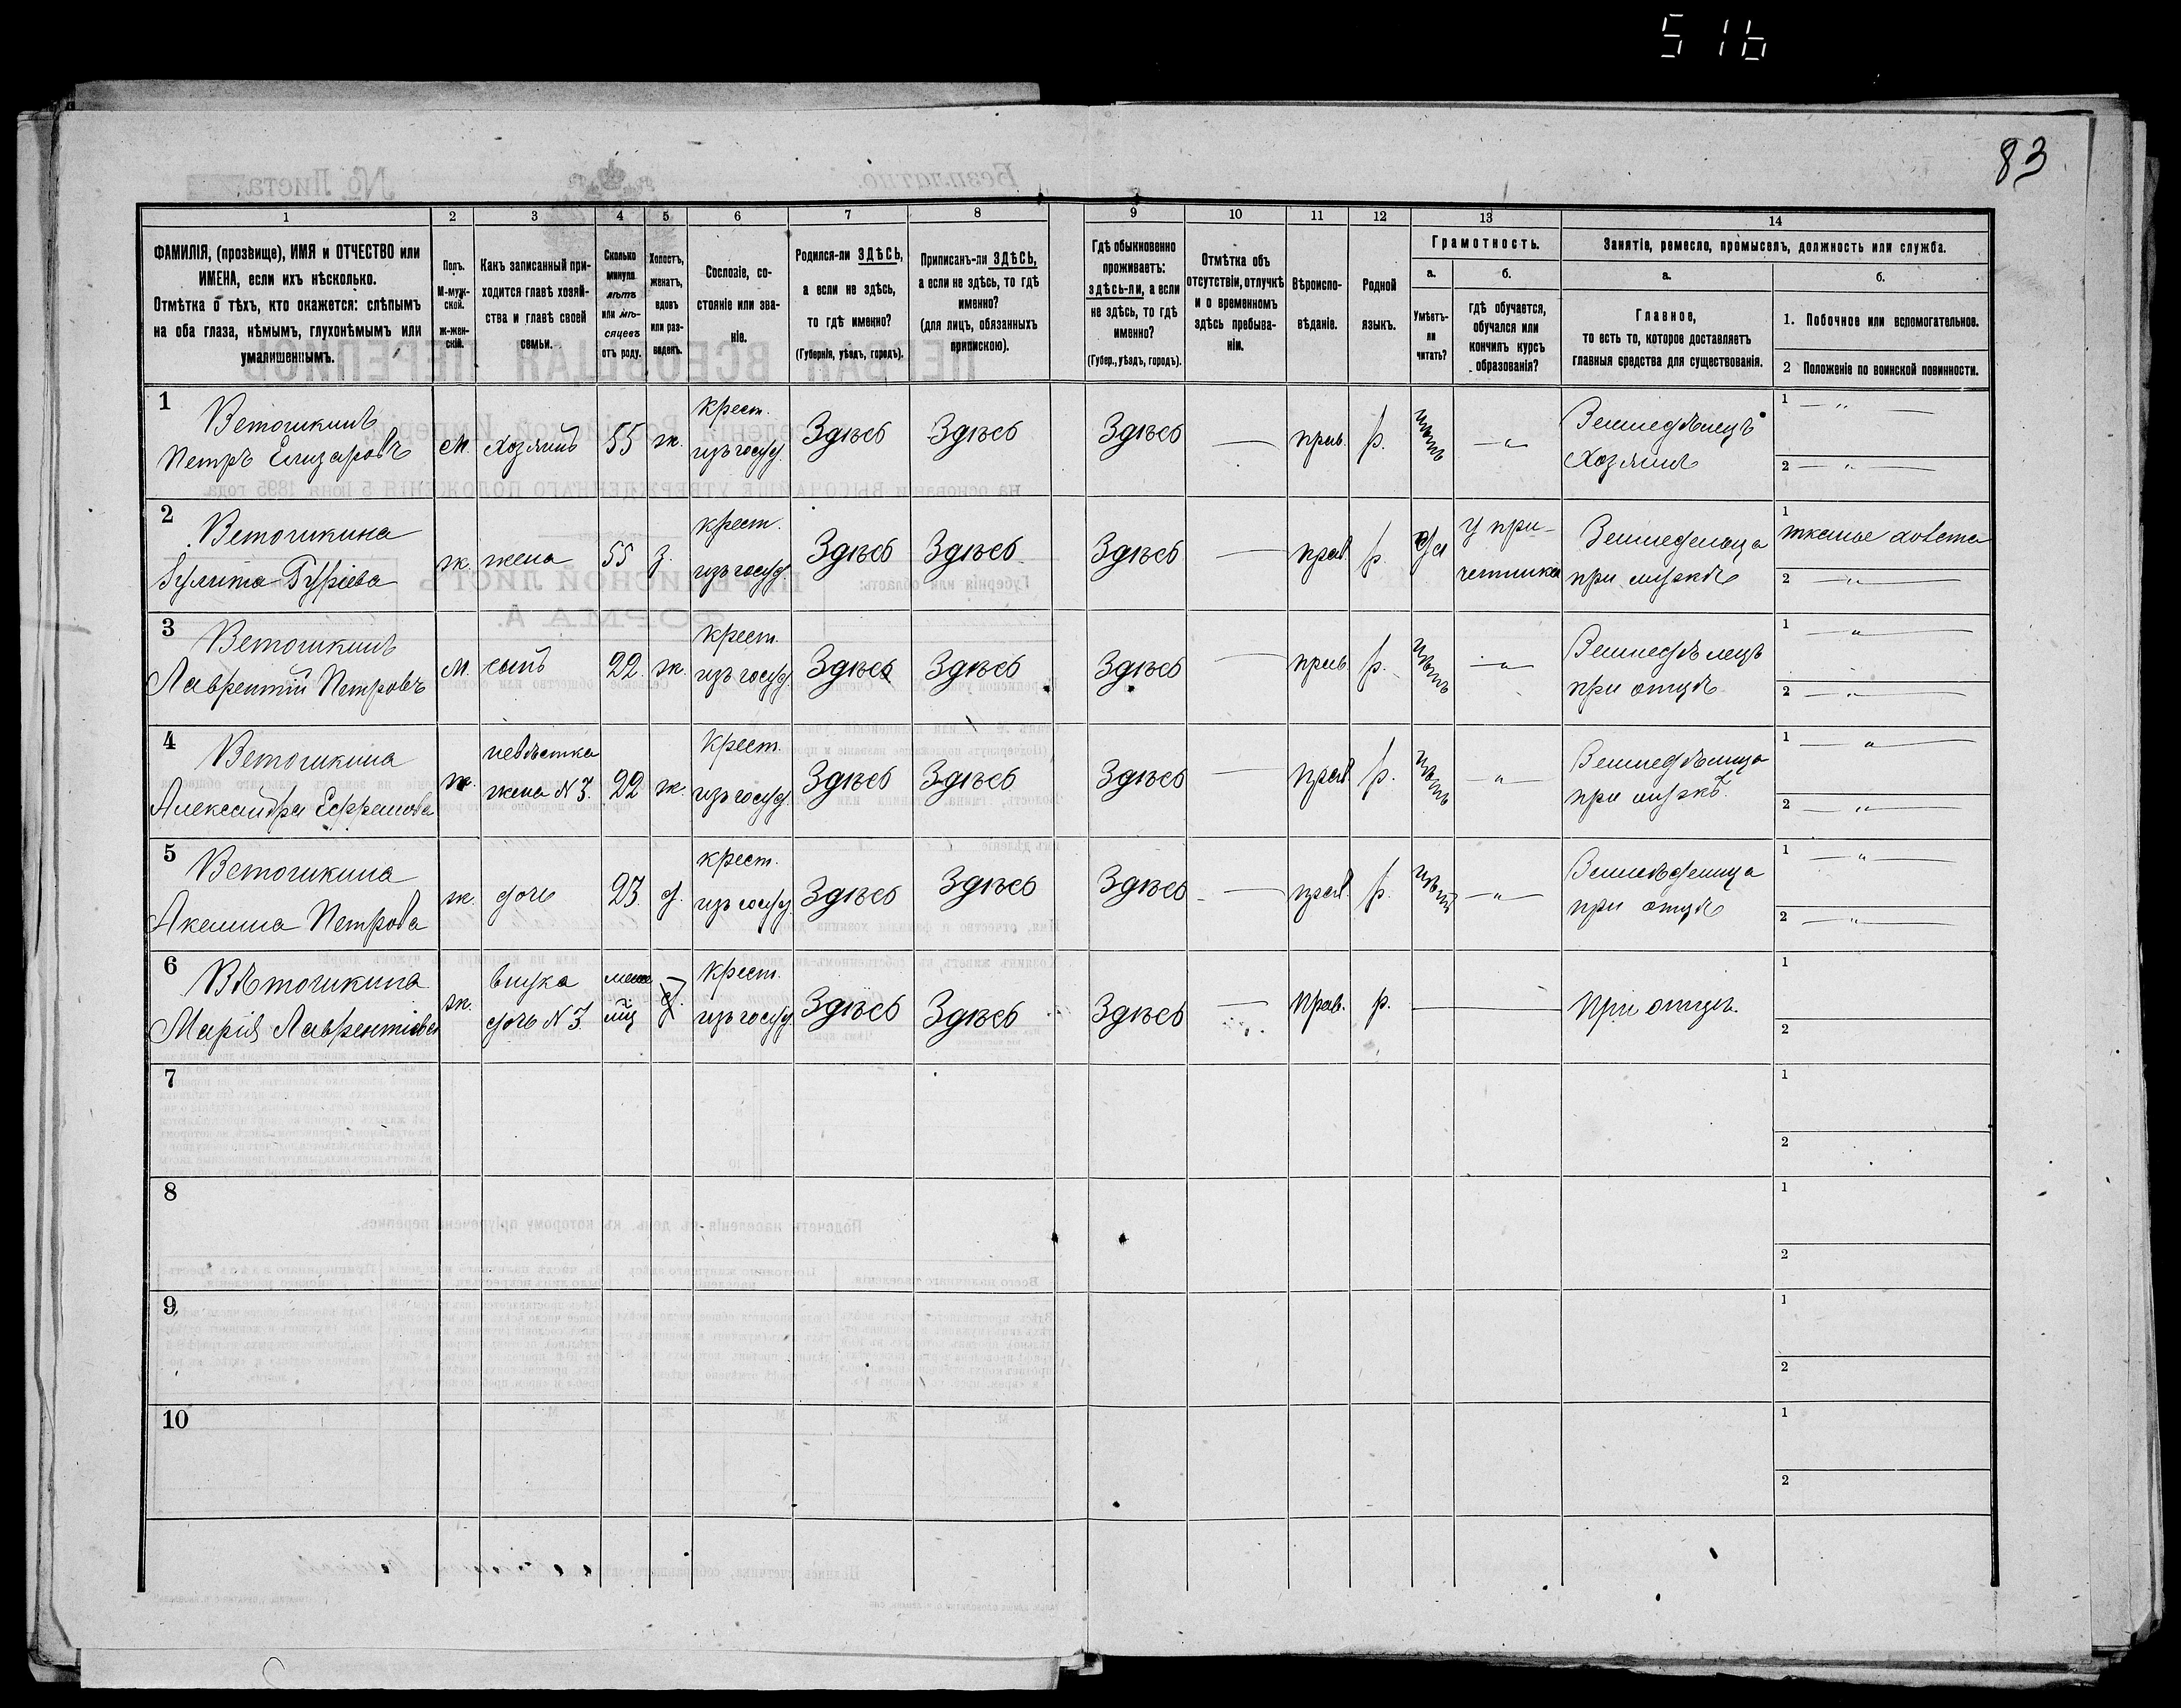 516
83
1 2 3 4 5 6 7 8 9 10 11 12 13 14
ФАМИЛІЯ, (прозвище), ИМЯ и ОТЧЕСТВО или ИМЕНА, если ихъ нѣсколько.
Отмѣтка о тѣхъ, кто окажется: слѣпымъ на оба глаза, нѣмымъ, глухонѣмымъ или умалишеннымъ.
Полъ. М-муж-ской. ж-жен-скій.
Какъ записанный при-ходится главѣ хозяй-ства и главѣ своей семьи.
Сколько минуло лѣтъ или мѣ-сяцевъ отъ роду.
Холостъ, женатъ, вдовъ или раз-веденъ.
Сословіе, со-стояніе или зва-ніе.
Родился-ли ЗДѢСЬ, а если не здѣсь, то гдѣ именно?
(Губернія, уѣздъ, городъ).
Приписанъ-ли ЗДѢСЬ, а если не здѣсь, то гдѣ именно?
(для лицъ, обязанныхъ припискою).
Гдѣ обыкновенно проживаетъ: здѣсь-ли, а если не здѣсь, то гдѣ именно?
(Губер., уѣздъ, городъ).
Отмѣтка объ отсутствіи, отлучкѣ и о временномъ здѣсь пребыва-ніи.
Вѣроиспо-вѣданіе.
Родной языкъ.
Грамотность.
а. Умѣетъ-ли читать?
б. гдѣ обучается, обучался или кончилъ курсъ образованія?
Занятіе, ремесло, промыселъ, должность или служба.
а.
Главное, то есть то, которое доставляетъ главныя средства для существованія.
б.
1. Побочное или вспомогательное.
2 Положеніе по воинской повинности.
1 Ветошкинъ Петръ Елизаровъ м. хозяинъ 55 ж. крест. изъ госуд. Здѣсь Здѣсь Здѣсь — прав. р. нѣтъ — " — Земледѣлецъ Хозяинъ 1 — " — 2 — " —
2 Ветошкина Улита Гурiева ж. жена 55 з. крест. изъ госуд. Здѣсь Здѣсь Здѣсь — прав. р. да у при-четника Земледелица при мужѣ 1 тканье холста 2 — " —
3 Ветошкинъ Лаврентiй Петровъ м. сынъ 22. ж. крест. изъ госуд. Здѣсь Здѣсь Здѣсь — прав. р. нѣтъ — " — Земледѣлецъ при отцѣ 1 — " — 2 — " —
4 Ветошкина Александра Ефремова ж. невѣстка жена N 3. 22 ж. Крест. изъ госуд. Здѣсь Здѣсь Здѣсь — прав. р. нѣтъ — " — Земледѣлица при мужѣ. 1 — " — 2 — " —
5 Ветошкина Акелина Петрова ж. дочь 23. д. крест. изъ госуд. Здѣсь Здѣсь Здѣсь — прав. р. нѣтъ — " — при отцѣ 1 — " — 2 — " —
6 Вѣтошкина Марiя Лаврентiева ж. внука дочь N 3 крест. изъ госуд. Здѣсь Здѣсь Здѣсь — Прав. р. — При отцѣ. 1 2
7 1 2
8 1 2
9 1 2
10 1 2